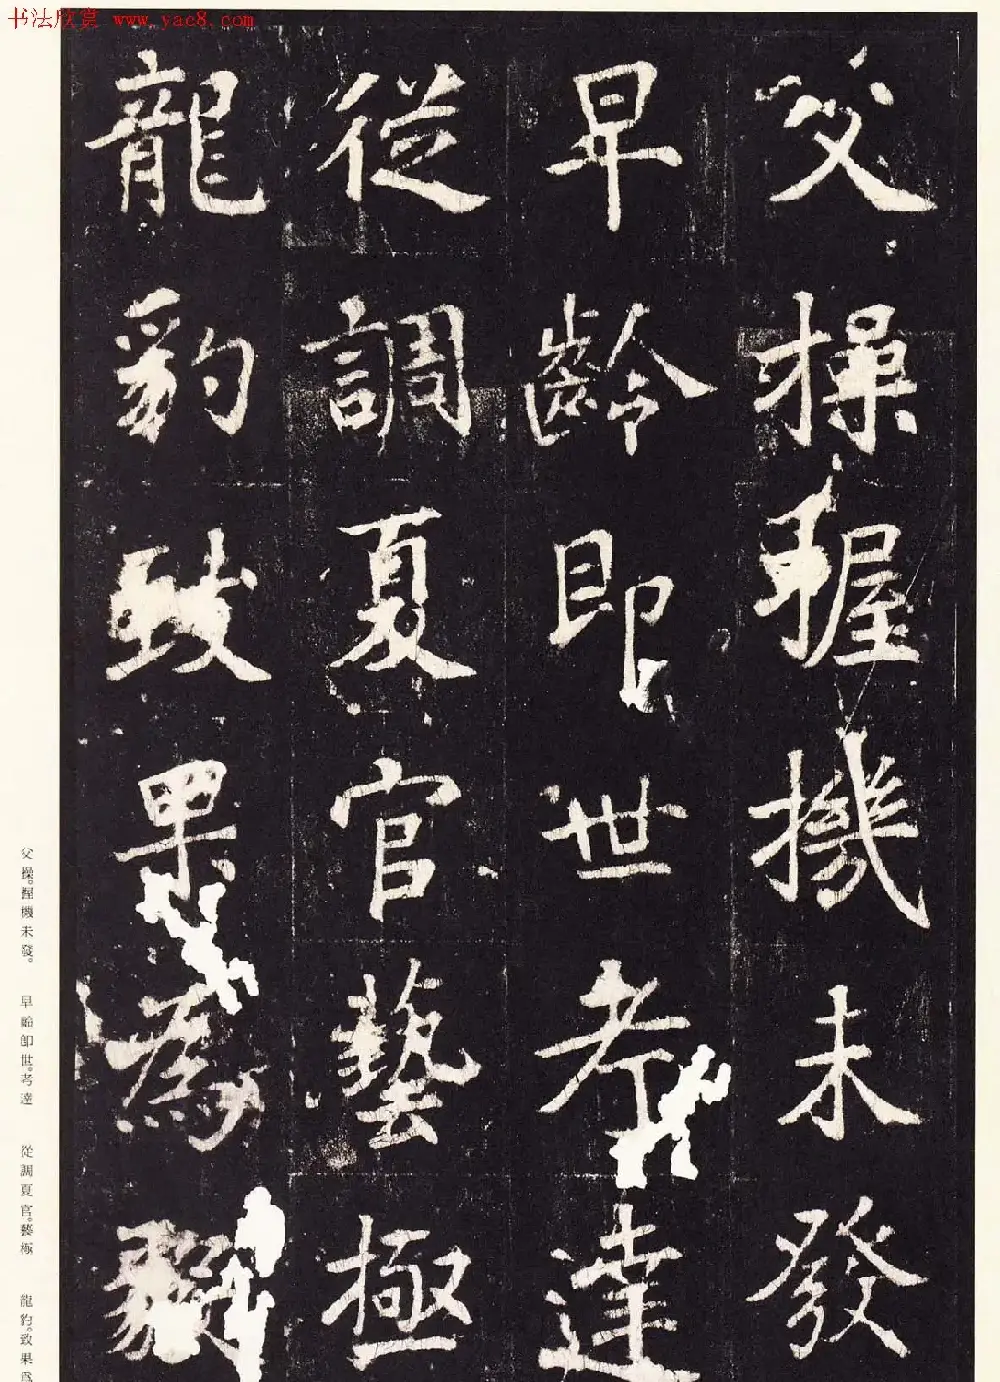 书法欣赏 www.yac8.com
父操握機未發
早齡即世考達
從調夏官藝極
龍豹致果為毅
父操。握機未發。 早齡即世。考達 從調夏官。藝極 龍豹。致果爲